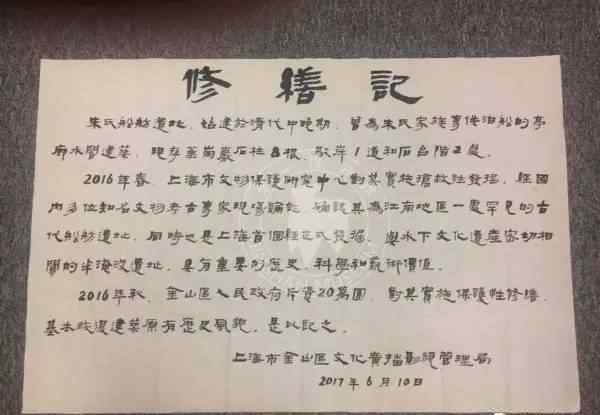 修繕記
朱氏船舫遺址,始建於清代中晚期,曾為朱氏家族專供泊船的亭
廊水閣建築,現存基崗巖石柱8根、駁岸1道和石台階2處。
2016年春,上海市文物保護研究中心對其實施搶救性發掘,經國
內多位知名文物考古專家現場論証,確認其為江南地區一處罕見的古
代船舫遺址,同時也是上海首個經正式發掘、與水下文化遺產密切相
關的半淹没遺址,具有重要的歷史、科學和藝術價值。
2016年秋,金山區人民政府斥資20萬圓,對其實施保護性修繕,
基本恢復建築原有歷史風貌,是以記之。
上海市金山區文化廣播影視管理局
2017年6月10日